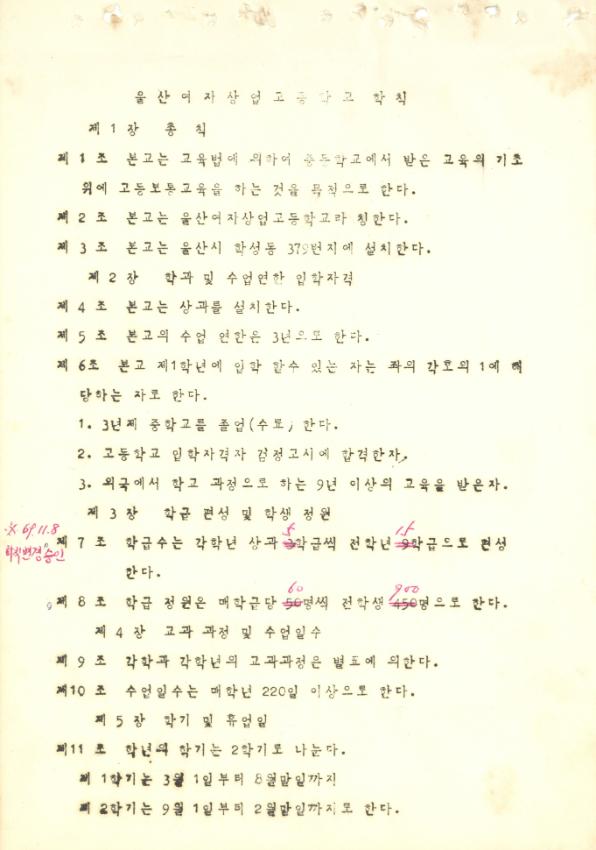 울산여자상업고등학교 학칙
제 1 장 총 칙
제 1 조 본고는 교육법에 의하여 중등학교에서 받은 교육의 기초
위에 고등보통교육을 하는 것을 목적으로 한다.
제 2 조 본고는 울산여자상업고등학교라 칭한다.
제 3 조 본고는 울산시 학성동 379번지에 설치한다.
제 2 장 학과 및 수업연한 입학자격
제 4 조 본고는 상과를 설치한다.
제 5 조 본고의 수업 연한은 3년으로 한다.
제 6조 본고 제1학년에 입학 할수 있는 자는 좌의 각호의 1에 해
당하는 자로 한다.
1. 3년제 중학교를 졸업(수료) 한다.
2. 고등학교 입학자격자 검정고시에 합격한자.
3. 외국에서 학교 과정으로 하는 9년 이상의 교육을 받은자.
제 3 장 학급 편성 및 학생 정원
※ 69 11.8
학칙변경 승인
5 15
제 7 조 학급수는 각학년 상과 3학급씩 전학년 9학급으로 편성
한다.
60 900
제 8 조 학급 정원은 매학급당 50명씩 전학생 450명으로 한다.
제 4 장 교과 과정 및 수업일수
제 9 조 각학과 각학년의 교과과정은 별표에 의한다.
제10 조 수업일수는 매학년 220일 이상으로 한다.
제 5 장 학기 및 휴업일
제11 조 학년의 학기는 2학기로 나눈다.
제 1학기는 3월 1일부터 8월말일까지
제 2학기는 9월 1일부터 2월말일까지로 한다.